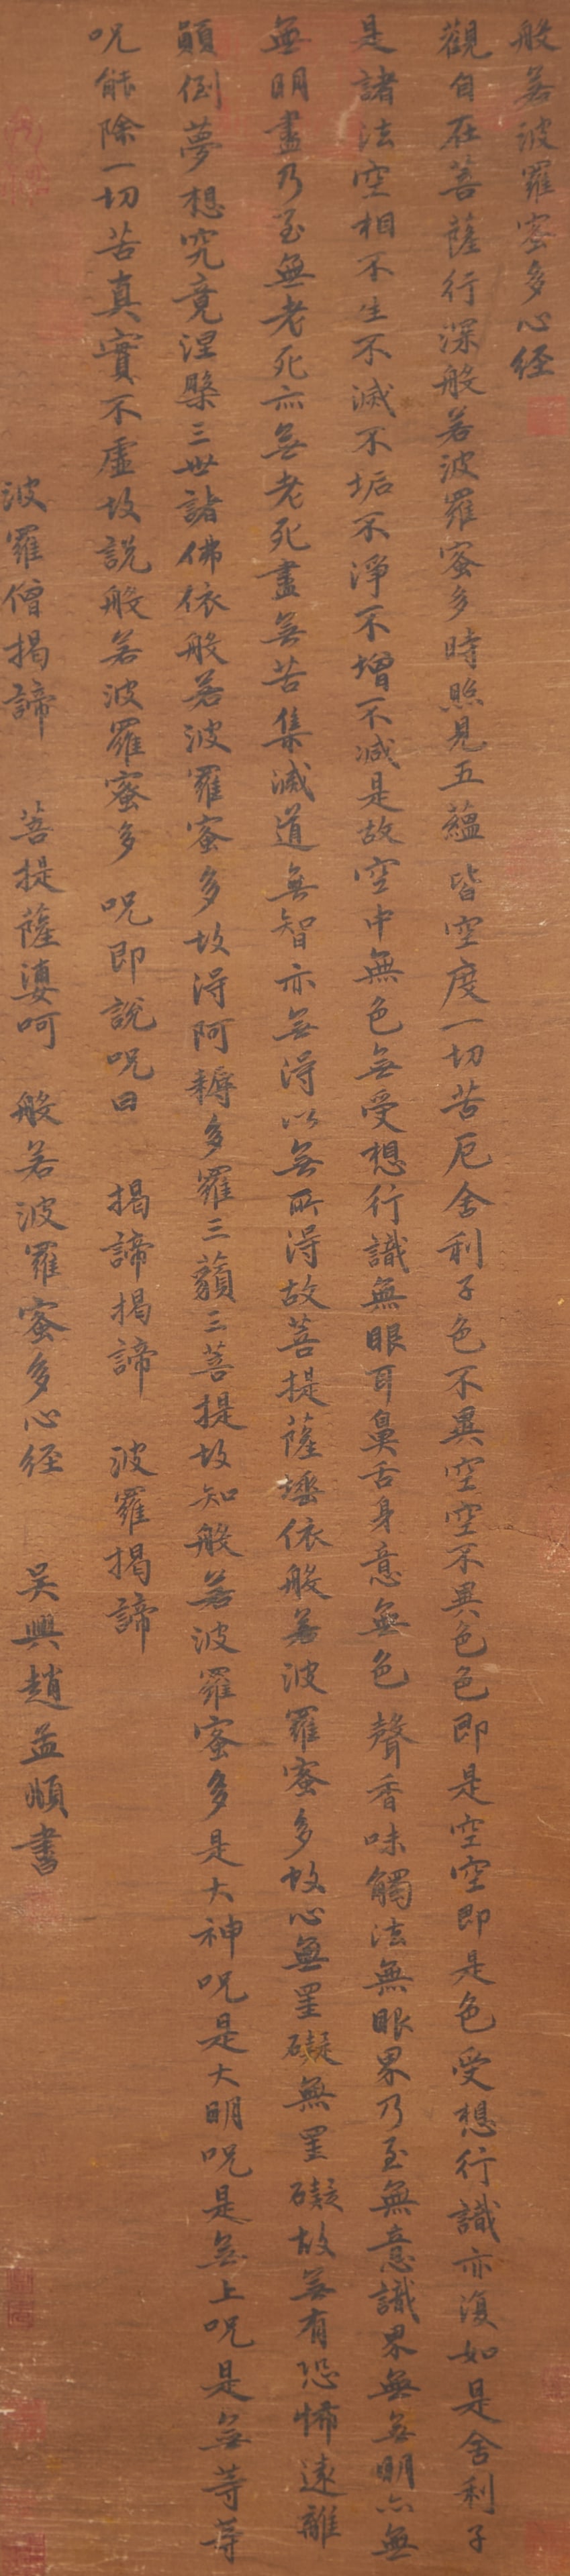 般若波羅蜜多心経
觀自在菩薩行深般若波羅蜜多時照見五蘊皆空度一切苦厄舍利子色不異空空不異色色即是空空即是色受想行識亦復如是舍利子
是諸法空相不生不滅不垢不淨不增不減是故空中無色無受想行識無眼耳鼻舌身意無色聲香味觸法無眼界乃至無意識界無無明亦無
無明盡乃至無老死亦無老死盡無苦集滅道無智亦無得以無所得故菩提薩埵依般若波羅蜜多故心無罣礙無罣礙故無有恐怖遠離
顛倒夢想究竟涅槃三世諸佛依般若波羅蜜多故得阿耨多羅三藐三菩提故知般若波羅蜜多是大神呪是大明呪是無上呪是無等等
呪能除一切苦真實不虛故説般若波羅蜜多呪即説呪曰 揭諦揭諦 波羅揭諦
波羅僧揭諦 菩提薩婆呵 般若波羅蜜多心経 吴興趙孟頫書